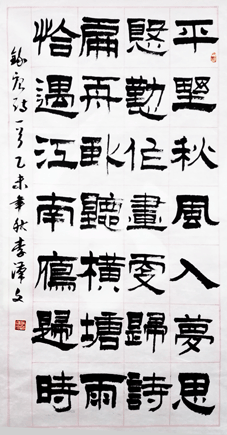 平野秋風入夢思
慇勤作畫更歸詩
扁舟臥聽橫塘雨
恰遇江南鴈歸時
詩一首乙未年秋李澤文